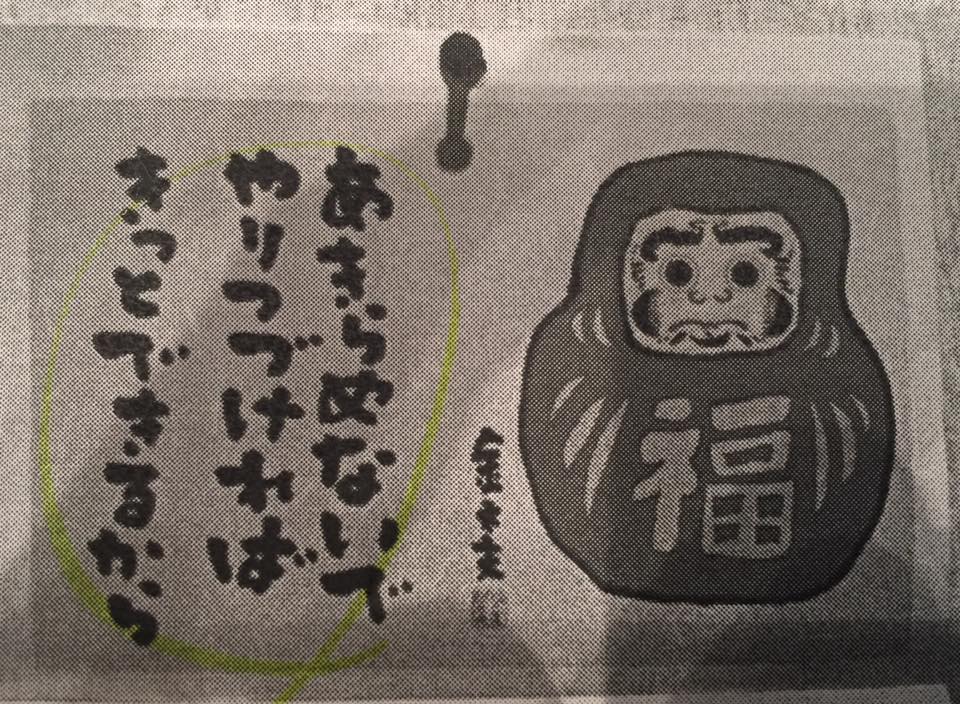 福
あきらめないで
やりつづければ
きっとできるから